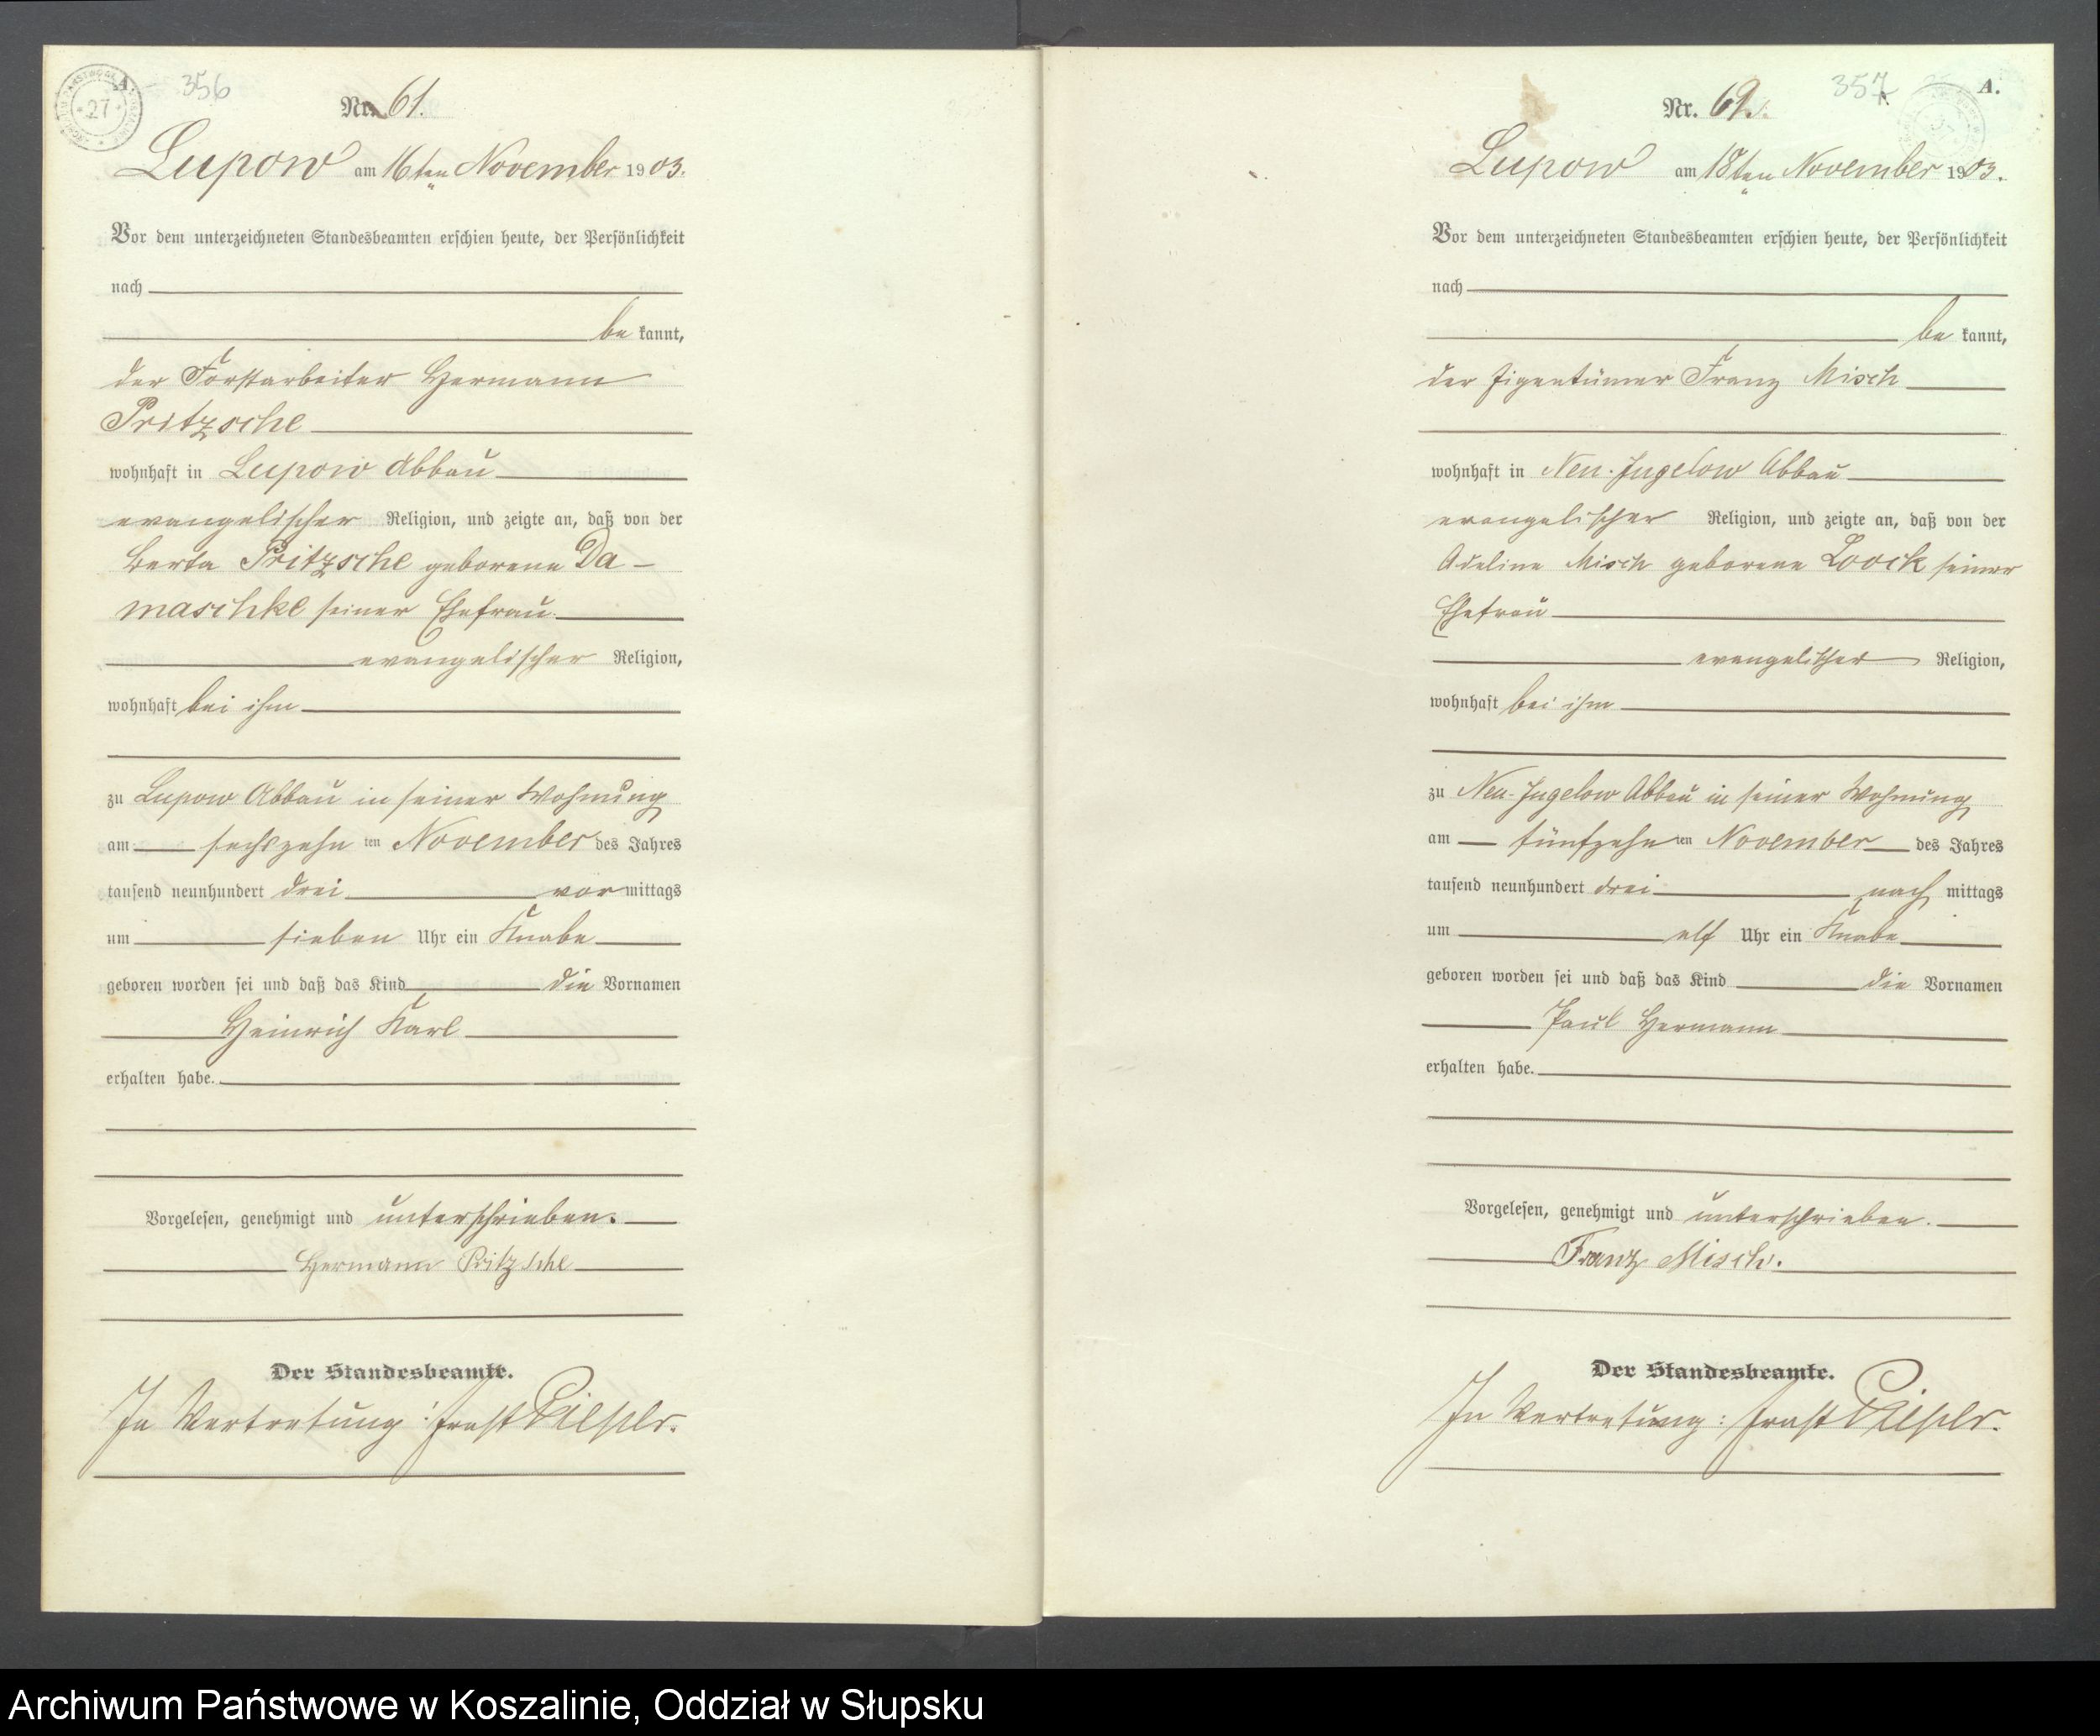 356
27
A.
Nr. 61.
Lupow am 16ten November 1903.
Vor dem unterzeichneten Standesbeamten erschien heute, der Persönlichkeit
nach
be kannt,
der Forstarbeiter Hermann
Pritzsche
wohnhaft in Lupow Abbau
evangelischer Religion, und zeigte an, daß von der
Berta Pritzsche geborene Da-
maschke seiner Ehefrau
evangelischer Religion,
wohnhaft bei ihm
zu Lupow Abbau in seiner Wohnung
am sechszehn ten November des Jahres
tausend neunhundert drei vor mittags
um sieben Uhr ein Knabe
geboren worden sei und daß das Kind die Vornamen
Heinrich Karl
erhalten habe.
Vorgelesen, genehmigt und unterschrieben.
Hermann Pritzsche
Der Standesbeamte.
In Vertretung: Ernst
357
A.
Nr. 62.
Lupow am 18ten November 1903.
Vor dem unterzeichneten Standesbeamten erschien heute, der Persönlichkeit
nach
be kannt,
der Eigentümer Franz Misch
wohnhaft in Neu-Jugelow Abbau
evangelischer Religion, und zeigte an, daß von der
Adeline Misch geborene Loock seiner
Ehefrau
evangelischer Religion,
wohnhaft bei ihm
zu Neu-Jugelow Abbau in seiner Wohnung
am fünfzehn ten November des Jahres
tausend neunhundert drei nach mittags
um elf Uhr ein Knabe
geboren worden sei und daß das Kind die Vornamen
Paul Hermann
erhalten habe.
Vorgelesen, genehmigt und unterschrieben.
Franz Misch.
Der Standesbeamte.
In Vertretung: Ernst
Archiwum Państwowe w Koszalinie, Oddział w Słupsku